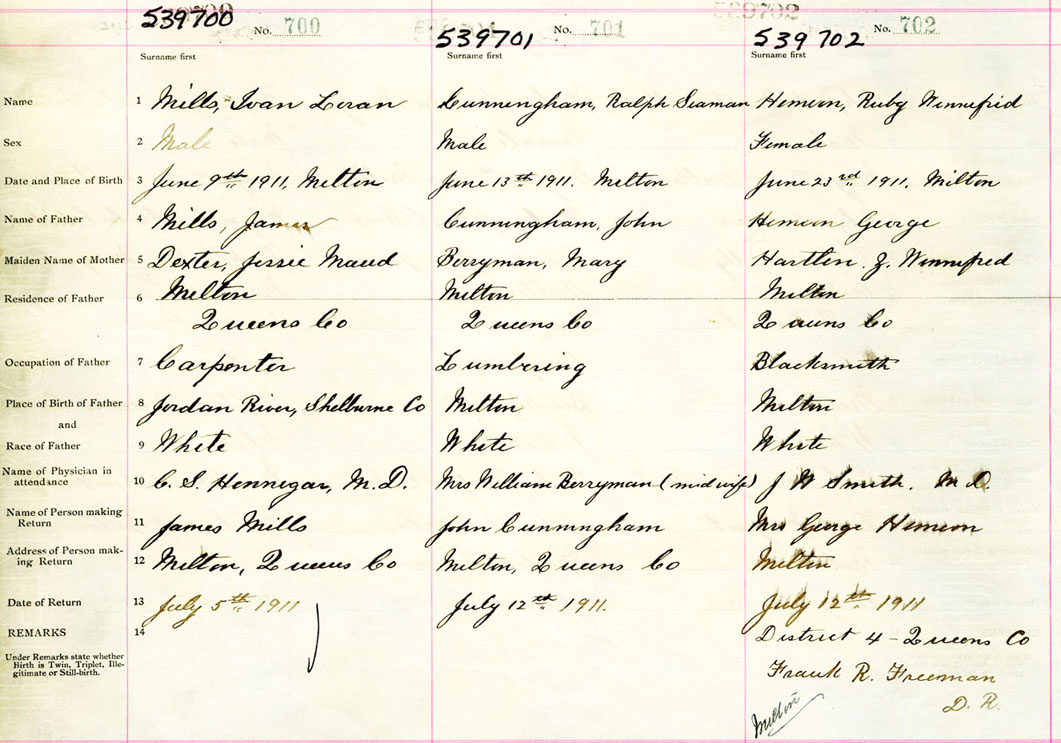 539700 539701 539702
No. 700 No. 701 No. 702
Surname first Surname first Surname first
Name 1 Mills, Ivan Loran Cunningham, Ralph Seaman Hemeon, Ruby Winnufrid
Sex 2 Male Male Female
Date and Place of Birth 3 June 9th 1911, Milton June 13th 1911. Milton June 23rd 1911, Milton
Name of Father 4 Mills, James Cunningham, John Hemeon George
Maiden Name of Mother 5 Dexter, Jessie Maud Berryman, Mary Hartlen. Z. Winnufred
Residence of Father 6 Milton Milton Milton
Queens Co Queens Co Queens Co
Occupation of Father 7 Carpenter Lumbering Blacksmith
Place of Birth of Father 8 Jordan River, Shelburne Co Milton Milton
and
Race of Father 9 White White White
Name of Physician in
attendance 10 C. S. Hennigar, M.D. Mrs William Berryman (midwife) J W Smith. M D.
Name of Person making
Return 11 James Mills John Cunningham Mrs George Hemeon
Address of Person mak-
ing Return 12 Milton, Queens Co Milton, Queens Co Milton
Date of Return 13 July 5th 1911 July 12th 1911. July 12th 1911
REMARKS 14 District 4 - Queens Co
Under Remarks state whether
Birth is Twin, Triplet, Ille-
gitimate or Still-birth.
Frank R. Freeman
D. R.
Milton